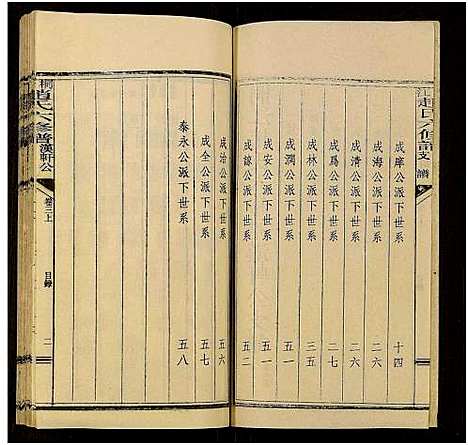 成岸公派下世系 十四
成海公派下世系 二六
成清公派下世系 二六
成賜公派下世系 二七
成林公派下世系 三五
成潤公派下世系 五一
成安公派下世系 五一
成鎵公派下世系 五二
成治公派下世系 五六
成全公派下世系 五七
泰永公派下世系 五八
桐
趙氏六修譜漢軒公
卷二上
目錄
二